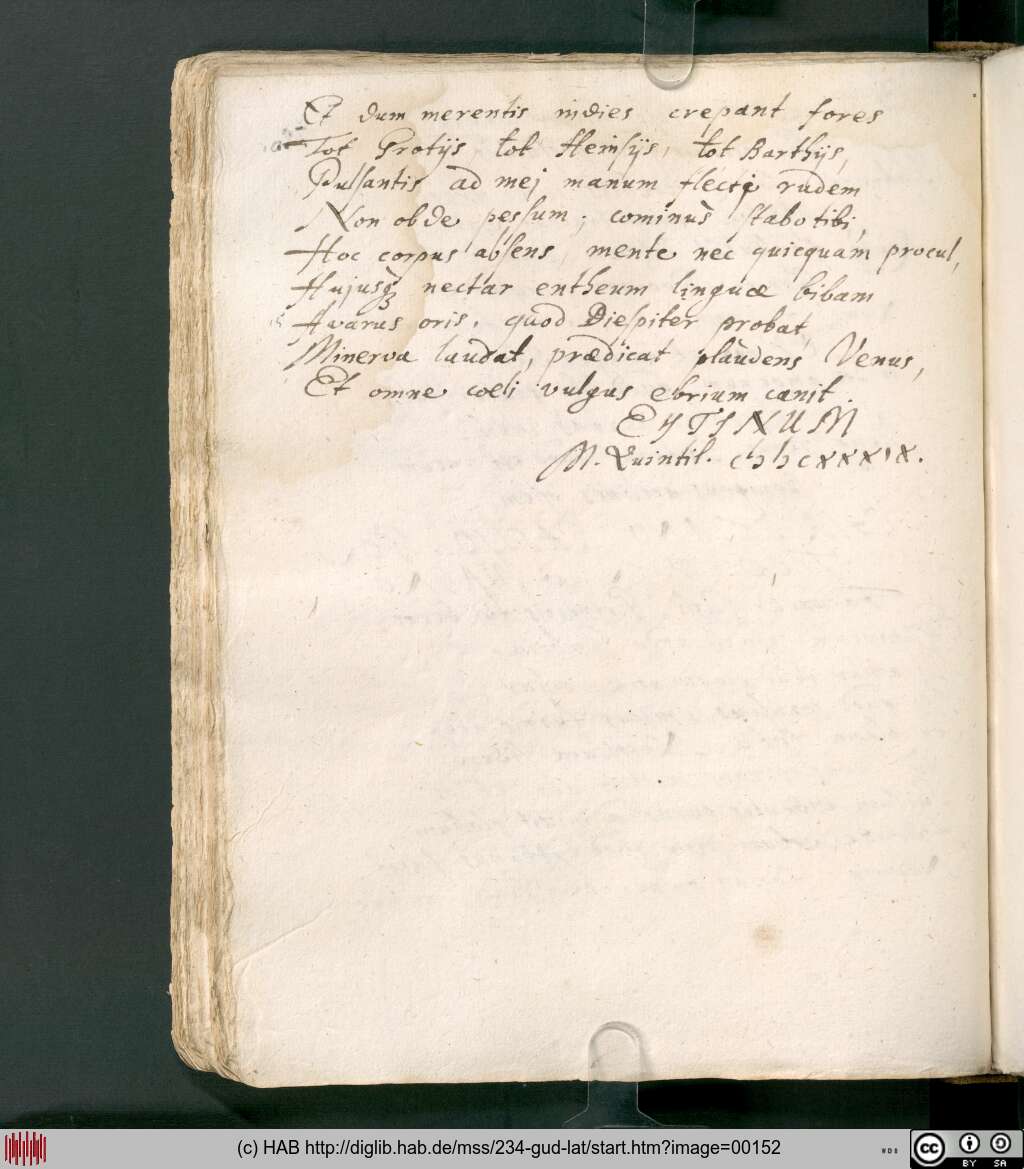 Et dum merentis indies crepant fores
Tot Grotijs, tot Heinsijs, tot Barthijs,
Pulsantis ad mej manum flecti rudem
Non obde pessum; cominùs stabo tibi,
Hoc corpus absens, mente nec quicquam procul,
Hujusq3 nectar entheum linguæ bibam
Avarus oris, quod Diespiter probat,
Minerva laudat, prædicat plaudens Venus,
Et omne coeli vulgus ebrium canit.
M. Quintil. cIɔ Iɔ cxxxıx.
(c) HAB http://diglib.hab.de/mss/234-gud-lat/start.htm?image=00152
WDB
cc BY SA